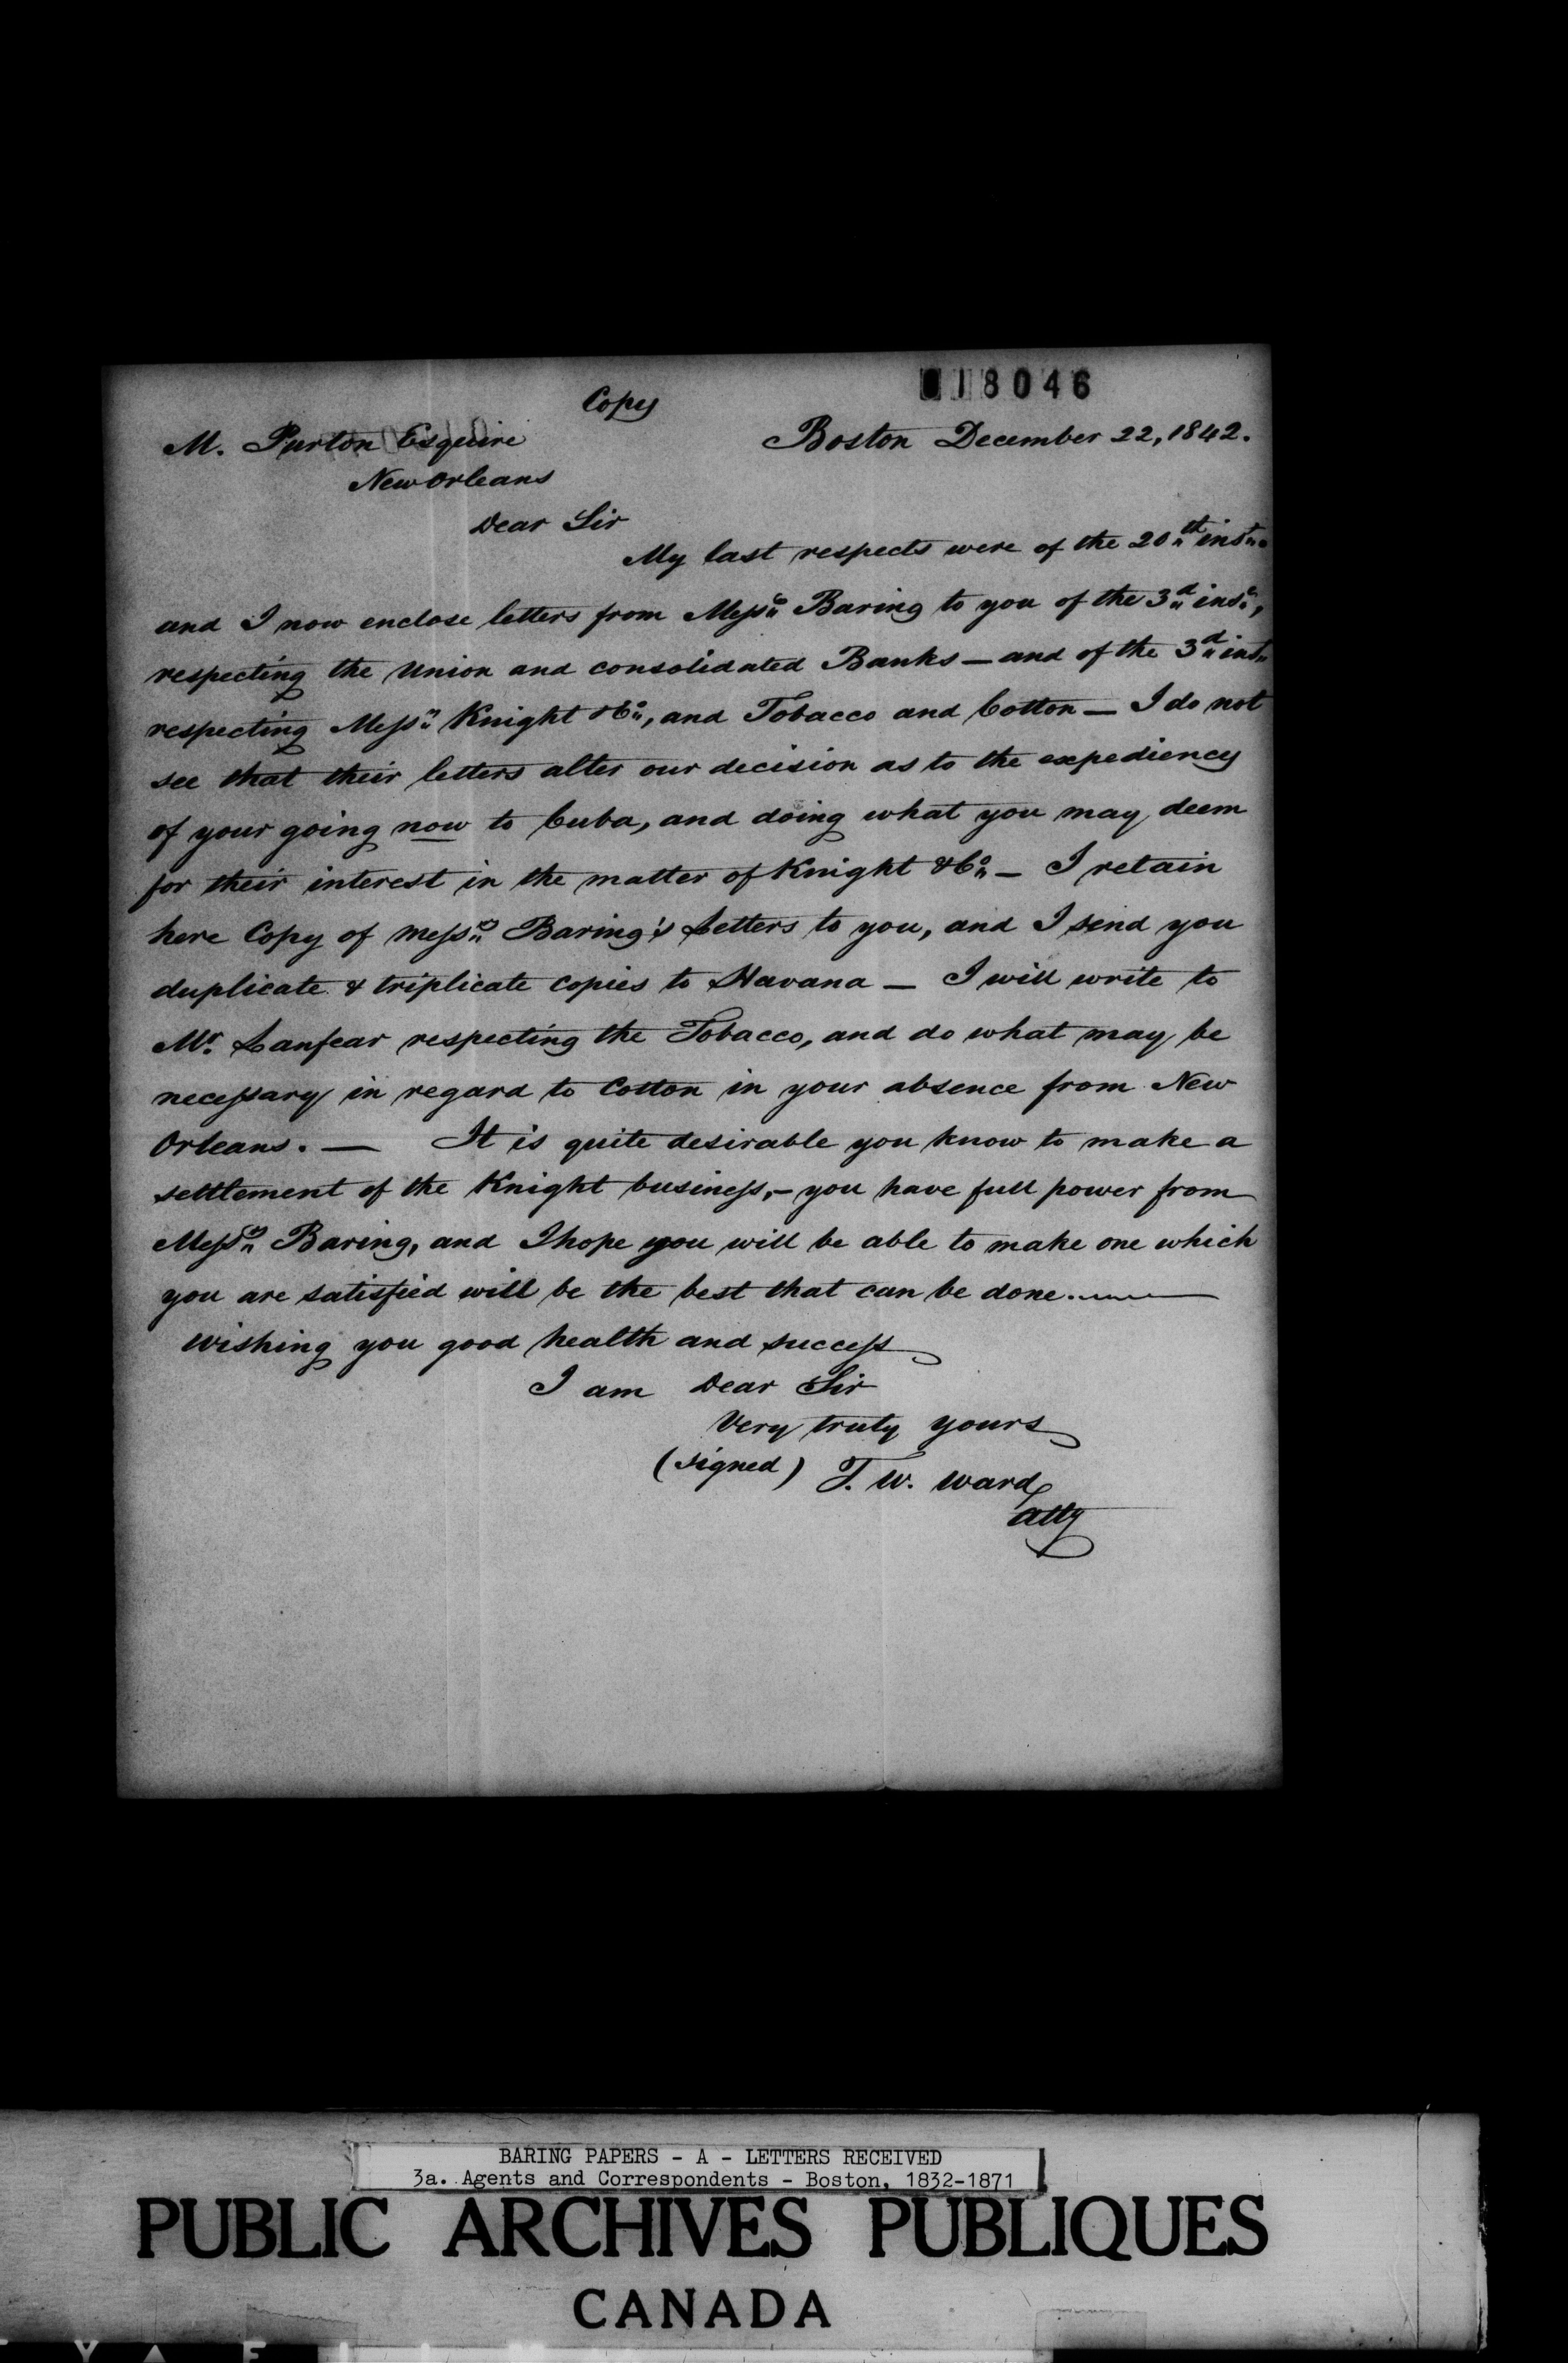 018046
Copy
M. Purton Esquire
Boston December 22, 1842.
New Orleans
Dear Sir
My last respects were of the 20th inst.
and I now enclose letters from Messrs Baring to you of the 3d inst,
respecting the Union and consolidated Banks — and of the 3d inst
respecting Messrs Knight & Co, and Tobacco and Cotton — I do not
see that their letters alter our decision as to the expediency
of your going now to Cuba, and doing what you may deem
for their interest in the matter of Knight & Co — I retain
here Copy of Messrs Baring's Letters to you, and I send you
duplicate & triplicate copies to Havana — I will write to
Mr. Lanfear respecting the Tobacco, and do what may be
necessary in regard to Cotton in your absence from New
Orleans. — It is quite desirable you know to make a
settlement of the Knight business, – you have full power from
Messrs Baring, and I hope you will be able to make one which
you are satisfied will be the best that can be done. —
Wishing you good health and success
I am Dear Sir
Very truly yours
(signed) T. W. Ward
atty
BARING PAPERS - A - LETTERS RECEIVED
3a. Agents and Correspondents - Boston, 1832-1871
PUBLIC ARCHIVES PUBLIQUES
CANADA